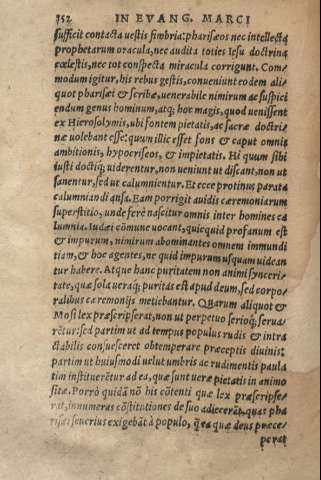 352 IN EVANG. MARCI
sufficit contacta uestis fimbria: pharisæos nec intellecta
prophetarum oracula, nec audita toties Iesu doctrina
cælestis, nec tot conspecta miracula corrigunt. Com
modum igitur, his rebus gestis, conueniunt eodem ali
quot pharisæi & scribæ, uenerabile nimirum ac suspici
endum genus hominum, atq; hoc magis, quod uenissent
ex Hierosolymis, ubi fontem pietatis, ac sacræ doctri
næ uolebant esse: quum illic esset fons & caput omnis
ambitionis, hypocriseos, & impietatis. Hi quum sibi
iusti doctiq; uiderentur, non ueniunt ut discant, non ut
sanentur, sed ut calumnientur. Et ecce protinus parata
calumniandi ansa. Eam porrigit auidis cæremoniarum
superstitio, unde ferè nascitur omnis inter homines ca
lumnia. Iudæi cōmune uocant, quicquid profanum est
& impurum, nimirum abominantes omnem immundi
tiam, & hoc agentes, ne quid impurum usquam uidean
tur habere. Atque hanc puritatem non animi synceri
tate, quæ sola ueraq; puritas est apud deum, sed corpo
ralibus cæremonijs metiebantur. Quarum aliquot &
Mosi lex præscripserat, non ut perpetuo serioq; serua
rētur: sed partim ut ad tempus populus rudis & intra
ctabilis consuesceret obtemperare præceptis diuinis:
partim ut huiusmodi uelut umbris ac rudimentis paula
tim instituerētur ad ea, quæ sunt ueræ pietatis in animo
sitæ. Porrò quidā nō his cōtenti quæ lex præscripse
rat, innumeras cōstitutiones de suo adiecerāt, quas pha
risæi seuerius exigebāt à populo, q̄ ea quæ deus præce
perat